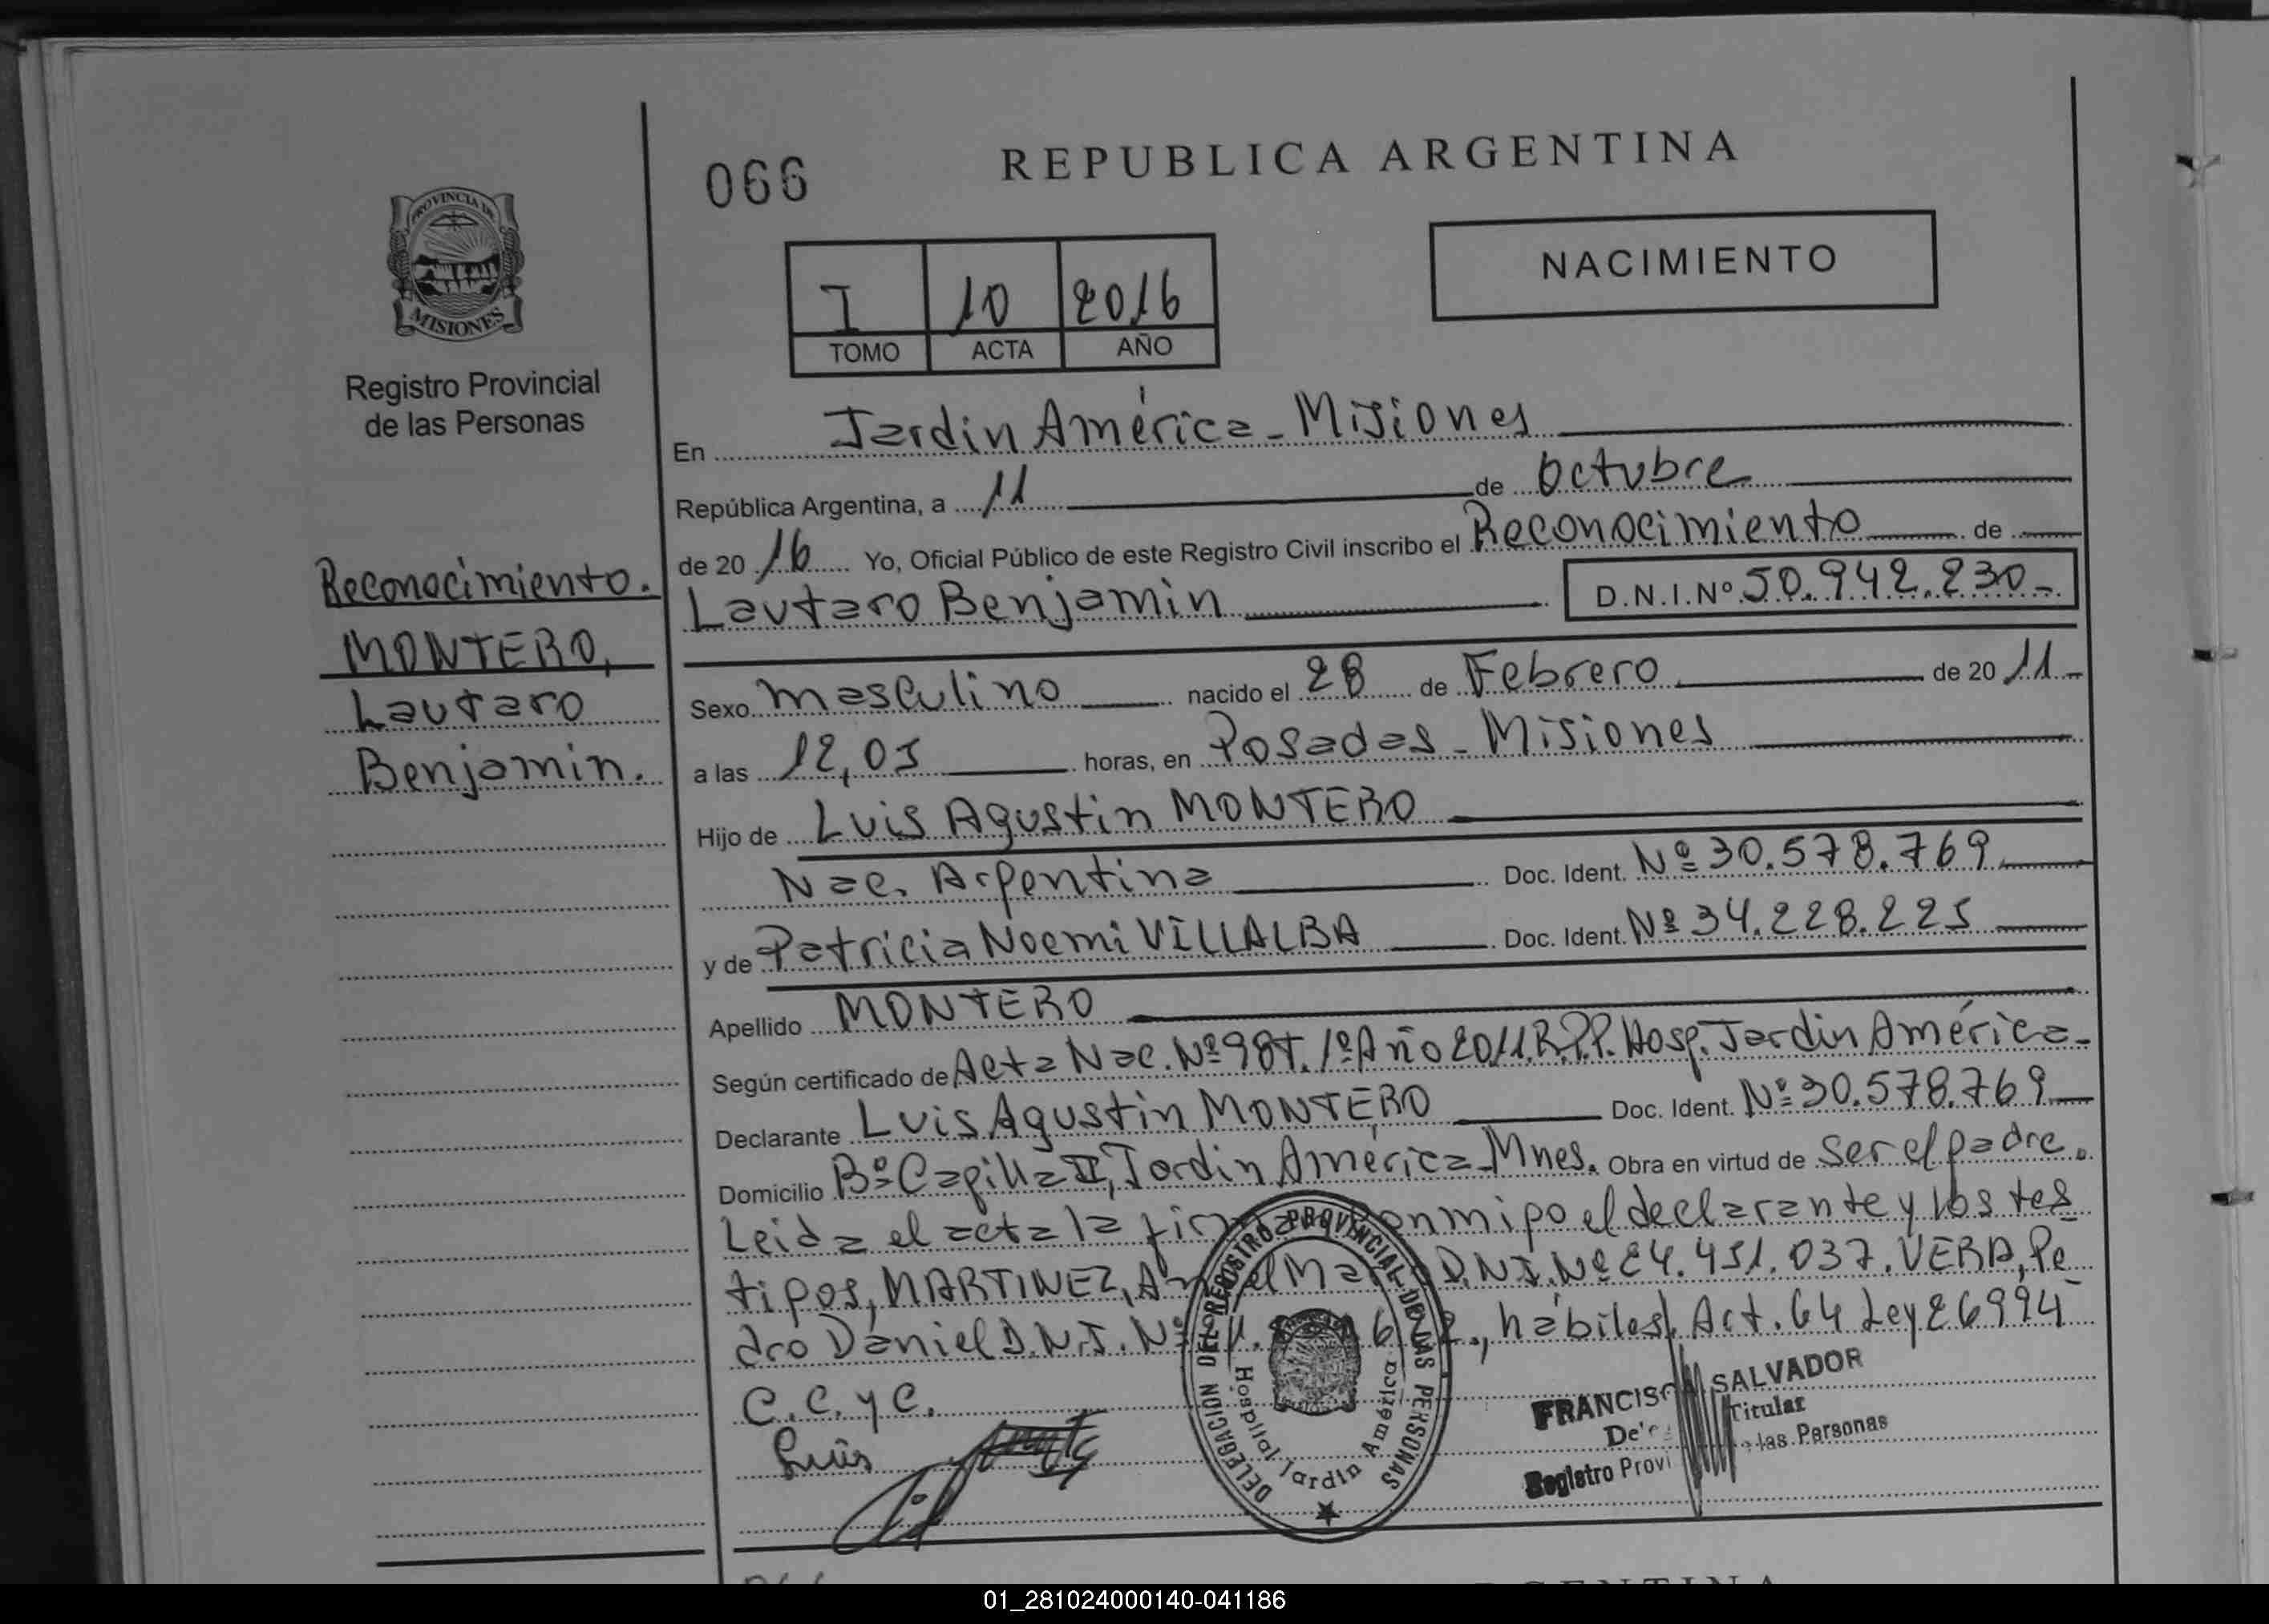 066
REPUBLICA ARGENTINA
PROVINCIA DE
MISIONES
Registro Provincial
de las Personas
NACIMIENTO
I 10 2016
TOMO ACTA AÑO
En Jardin América - Misiones
República Argentina, a 11 de Octubre
de 20 16 Yo, Oficial Público de este Registro Civil inscribo el Reconocimiento de
Lautaro Benjamin D.N.I. Nº 50.942.230-
Reconocimiento.
MONTERO,
Lautaro
Benjamin.
Sexo masculino nacido el 28 de Febrero de 20 11
a las 12,05 horas, en Posadas - Misiones
Hijo de Luis Agustin MONTERO
Nac. Argentina Doc. Ident. Nº 30.578.769
y de Patricia Noemi VILLALBA Doc. Ident. Nº 34.228.225
Apellido MONTERO
Según certificado de Acta Nac. Nº 98 T. 1º Año 2011. R.P.P. Hosp. Jardin América-
Declarante Luis Agustin MONTERO Doc. Ident. Nº 30.578.769
Domicilio Bº Capilla II, Jardin América - Mnes. Obra en virtud de ser el padre.
Leida el acta la conmigo el declarante y los tes
tigos, MARTINEZ, D.N.I. Nº 24.451.037. VERA, Pe
dro Daniel D.N.I. Nº hábiles. Art. 64 Ley 26994
C.C. y C.
Luis
DELEGACION DEL REGISTRO PROVINCIAL DE LAS PERSONAS
Hospital Jardin América
FRANCISCO SALVADOR
Titular
Registro Provi las Personas
01_281024000140-041186